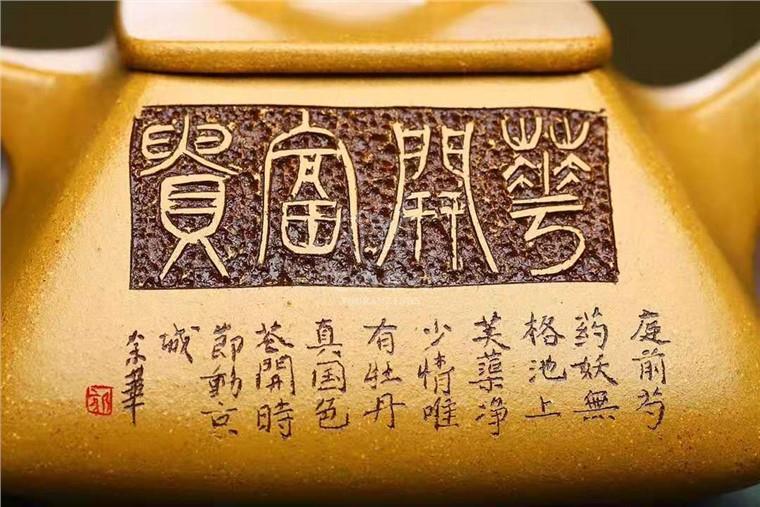 華開富貴
庭前芍
药妖無
格池上
芙蕖净
少情唯
有牡丹
真国色
花開時
節動京
城
華